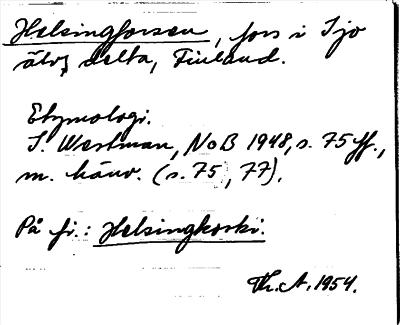 Helsingforsen, fors i Ijo
älvs delta, Finland.
Etymologi.
I. Westman, NoB 1948, s. 75 ff.,
m. hänv. (s. 75, 77).
På fi.: Helsingkoski.
Th. A. 1954.